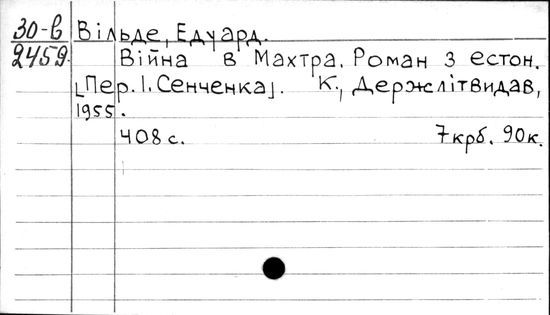 30-в Вільде, Едуард.
2459. Війна в Махтра. Роман з естон.
[Пер. І. Сенченка]. К., Держлітвидав,
1955.
408 с. 7 крб. 90 к.